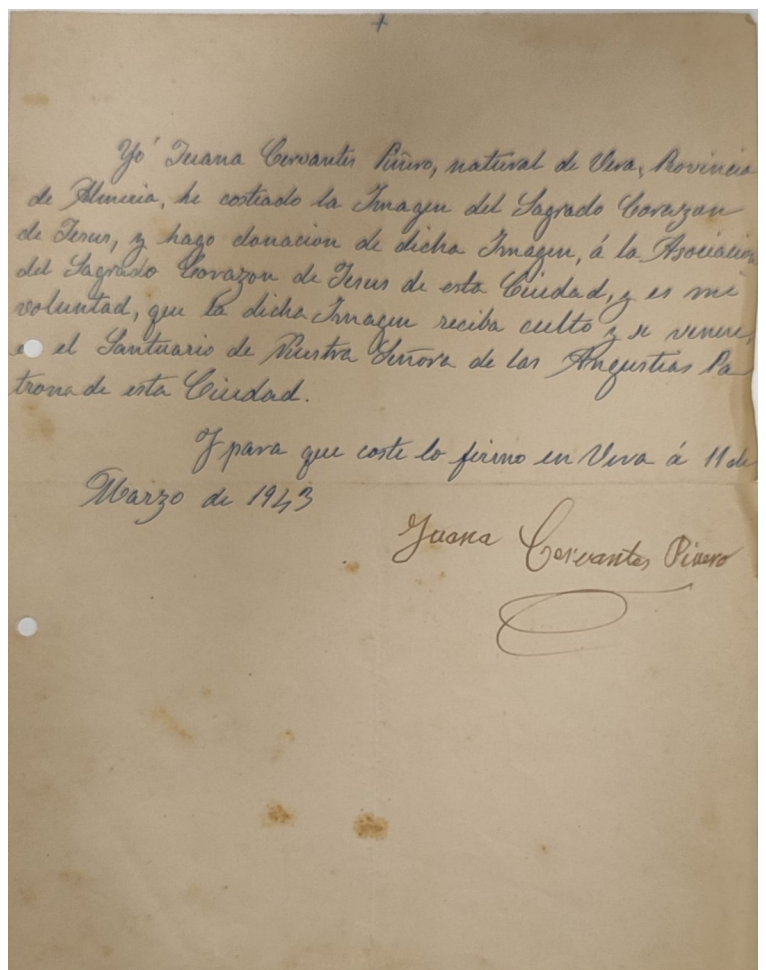 +
Yo Juana Cervantes Piñero, natural de Vera, Provincia
de Almeria, he costeado la Imagen del Sagrado Corazon
de Jesus, y hago donacion de dicha Imagen, á la Asociacion
del Sagrado Corazon de Jesus de esta Ciudad, y es mi
voluntad, que la dicha Imagen reciba culto y se venere,
el Santuario de Nuestra Señora de las Angustias Pa
trona de esta Ciudad.
Y para que coste lo firmo en Vera á 11 de
Marzo de 1943
Juana Cervantes Piñero